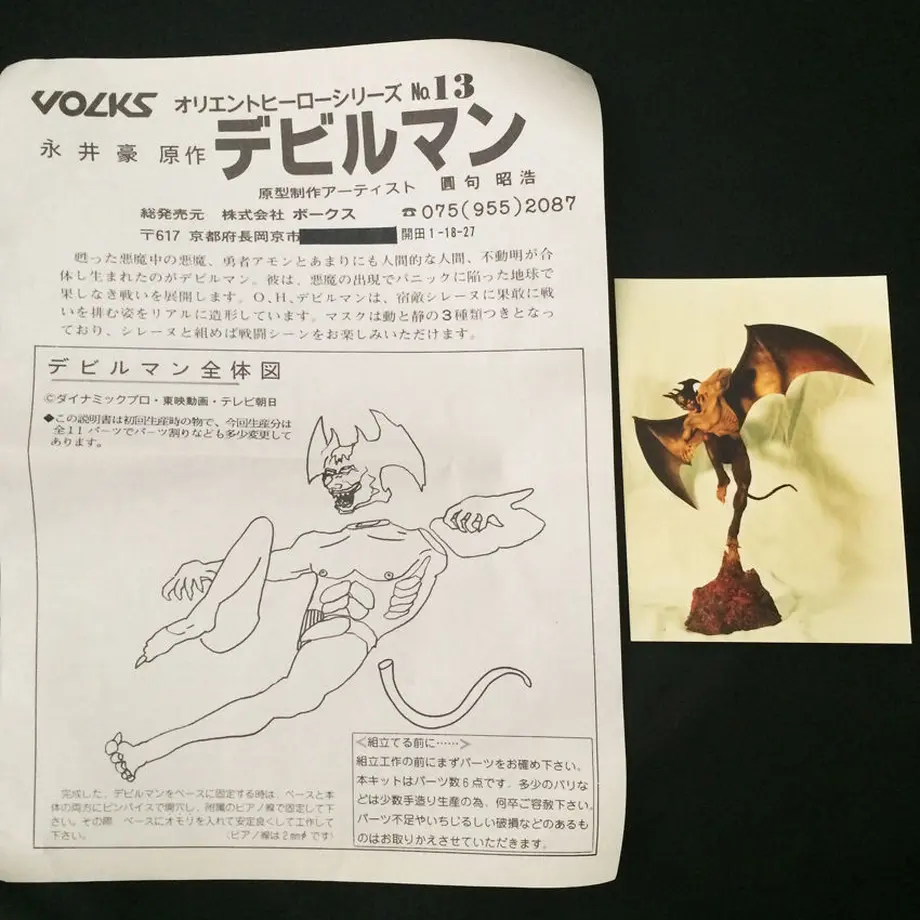 VOLKS オリエントヒーローシリーズ No.13
永井豪 原作 デビルマン
原型制作アーティスト 圓句 昭浩
総発売元 株式会社 ボークス ☎075(955)2087
〒617 京都府長岡京市 開田1-18-27
甦った悪魔中の悪魔、勇者アモンとあまりにも人間的な人間、不動明が合
体し生まれたのがデビルマン。彼は、悪魔の出現でパニックに陥った地球で
果しなき戦いを展開します。O,H,デビルマンは、宿敵シレーヌに果敢に戦
いを挑む姿をリアルに造形しています。マスクは動と静の3種類つきとなっ
ており、シレーヌと組めば戦闘シーンをお楽しみいただけます。
デビルマン全体図
©ダイナミックプロ・東映動画・テレビ朝日
◆この説明書は初回生産時の物で、今回生産分は
全11パーツでパーツ割りなども多少変更して
あります。
完成した、デビルマンをベースに固定する時は、ベースと本
体の両方にピンバイスで開穴し、附属のピアノ線で固定して下
さい。その際 ベースにオモリを入れて安定良くして工作して
下さい。 (ピアノ線は2mmφです)
<組立てる前に……>
組立工作の前にまずパーツをお確め下さい。
本キットはパーツ数6点です。多少のバリな
どは少数手造り生産の為、何卒ご容赦下さい。
パーツ不足やいちじるしい破損などのあるも
のはお取りかえさせていただきます。